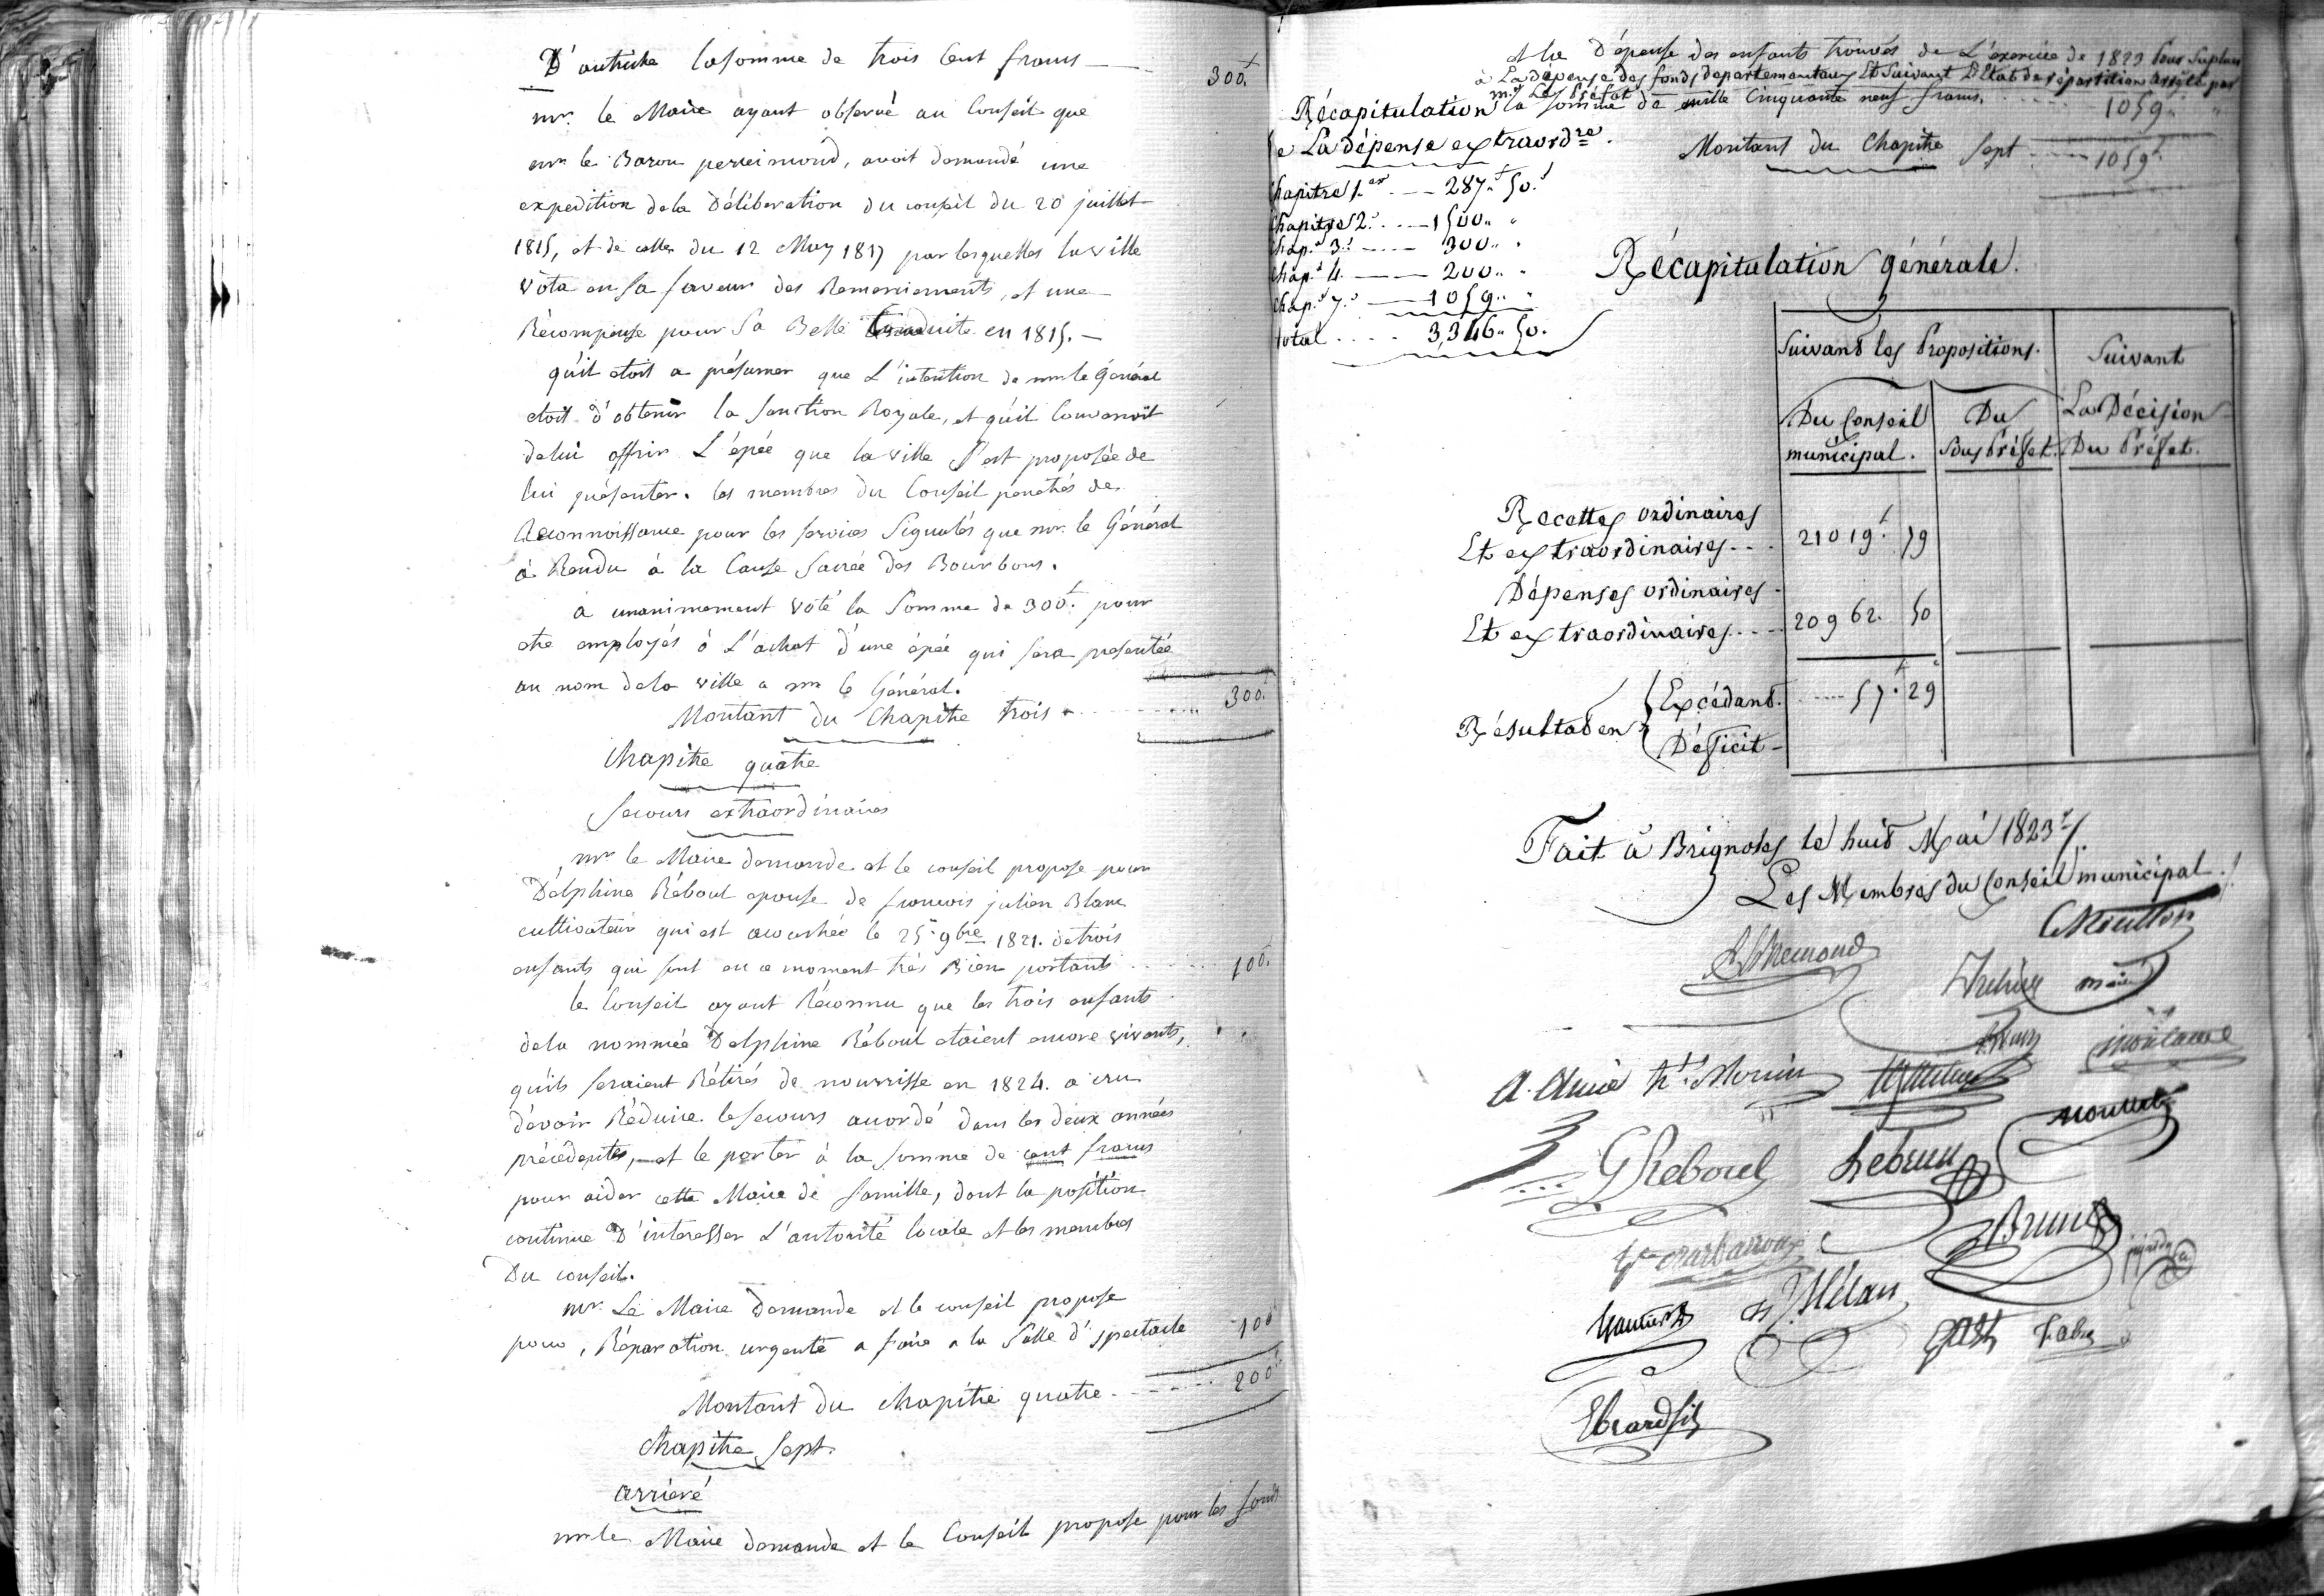 D'autriche la somme de trois Cent francs 300.f
mr. le Maire ayant observé au Conseil que
mr. le Baron perreimond, avoit demandé une
expedition de la Déliberation du conseil du 20 juillet
1815, et de celle du 12 May 1817 par lesquelles la ville
vôta en sa faveur des Remerciements, et une
Récompense pour Sa Belle Conduite en 1815. —
qu'il etoit a présumer que L'intention de mr le Général
etoit d'obtenir la sanction Royale, et qu'il Convenoit
de lui offrir L'épée que la ville s'est proposée de
lui présenter. les membres du Conseil penetrés de
Reconnoissance pour les services Signalés que mr. le Général
à Rendu à la Cause Sacrée des Bourbons.
a unanimement voté la Somme de 300f. pour
etre employés à L'achat d'une épée qui sera presentée
au nom de la ville a mr le Général.
Montant du Chapitre trois 300.f
Chapitre quatre
Secours extraordinaires
mr le Maire demande et le conseil propose pour
Délphine Réboul epouse de francois julien Blanc
cultivateur qui est accouchée le 25 9bre 1821. de trois
enfants qui sont en ce moment très Bien portants 100.f
le Conseil ayant Réconnu que les trois enfants
de la nommée Delphine Réboul etaient encore vivants,
qu'ils seraient Rétirés de nourrisse en 1824. a cru
dévoir Réduire le secours accordé dans les deux années
précédentes, et le porter à la somme de cent francs
pour aider cette Maire de famille, dont la position
continue D'interesser L'autorité locale et les membres
Du conseil.
mr. Le Maire Demande et le conseil propose
pour, Réparation urgente a faire a la Salle d'spectacle 100
Montant du chapitre quatre 200f
Chapitre Sept.
arriéré
mr le Maire demande et le Conseil propose pour les fonds
et la Dépense des enfants trouvés de L'exercice de 1823
à La dépense des fonds departementaux Et Suivant L'Etat de répartition arrêté par
mr Le Préfet la somme de mille Cinquante neuf francs. 1059.
Montant du Chapitre Sept 1059f
Récapitulation
de La dépense extraordre.
Chapitre 1.er 287.f 50.
Chapitre 2. 1500.. "
Chap.e 3. 300.. "
Chap.e 4. 200.. "
Chap.e 7. 1059.. "
total 3,346.. 50.
Récapitulation générale.
Suivant les Propositions. Suivant La Décision Du Préfet.
Du Conseil municipal. Du Sous Préfet.
Recettes ordinaires
Et extraordinaires 21019.f 79
Dépenses ordinaires
Et extraordinaires 20962. 50
Résultat en Excédant. 57.f 29
Déficit
Fait à Brignoles le huit Mai 1823
Les Membres du Conseil municipal.
maire
A. Amic
G Reboul Lebrun
Brun
Gautier
Gasti
Ebrard fils